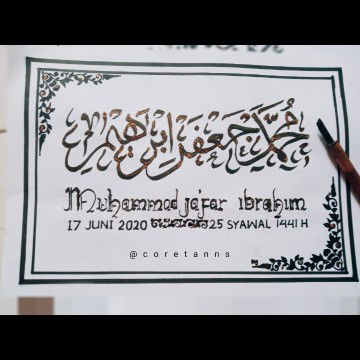 محمد جعفر ابراهيم
Muhammad ja'far ibrahim
17 JUNI 2020 25 SYAWAL 1441 H
@coretanns